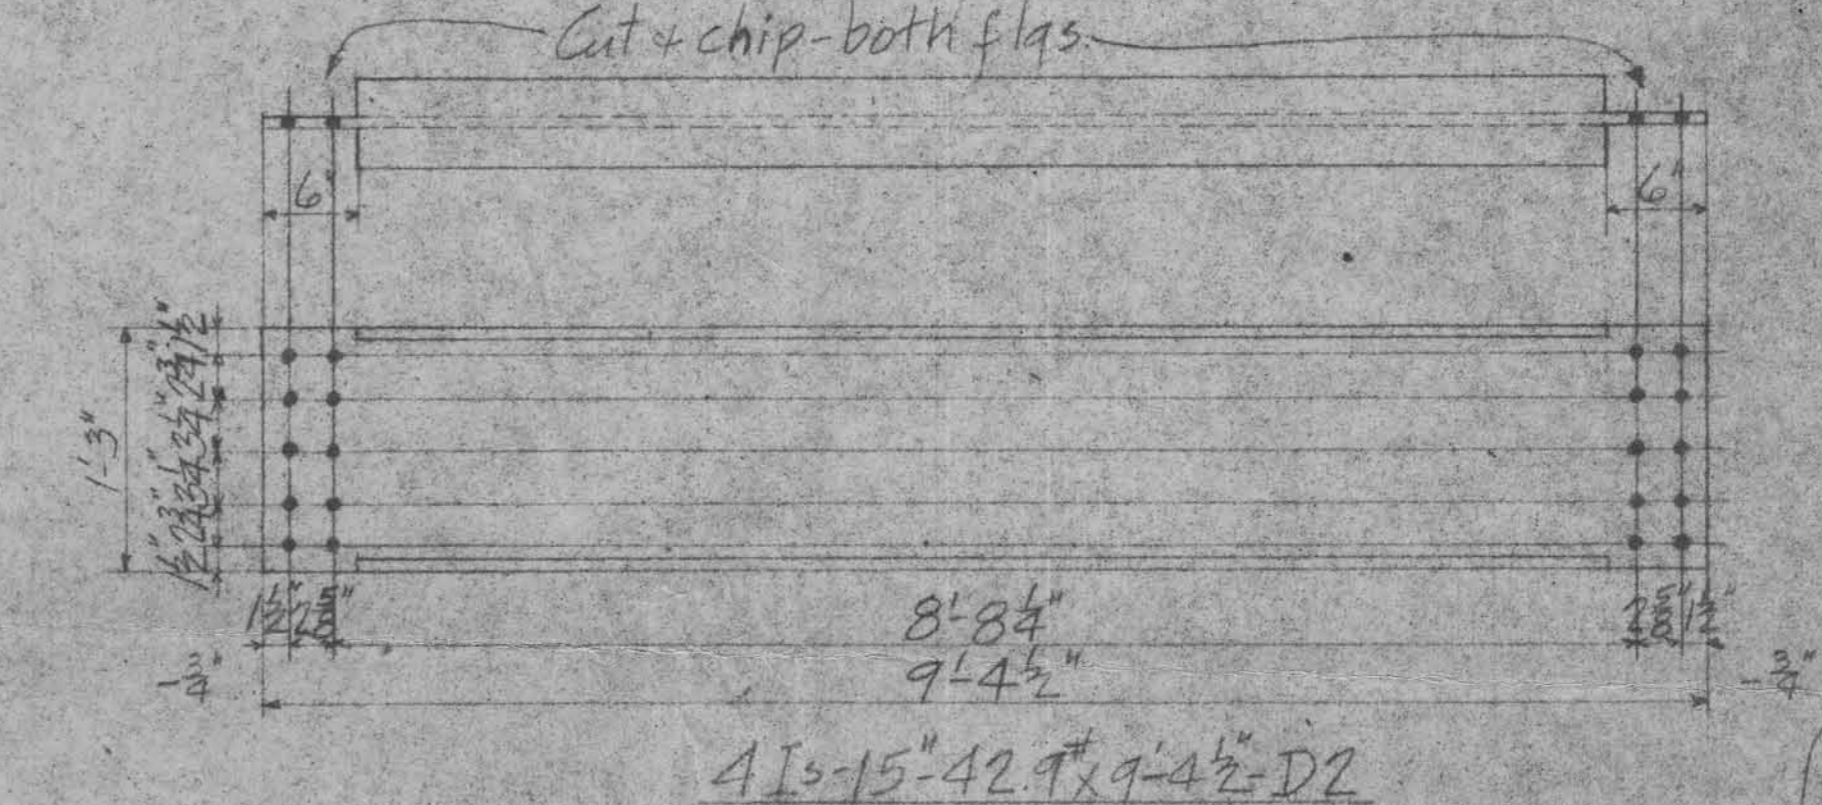 Cut & chip-both flgs.
6"
6"
1'-3"
1½" 2¾" 3¼" 3¼" 2¾" 1½"
1½" 2⅝" 8'-8¼" 2⅝" 1½"
-¾" 9'-4½" -¾"
4 Is-15"-42.9# x 9'-4½"-D2